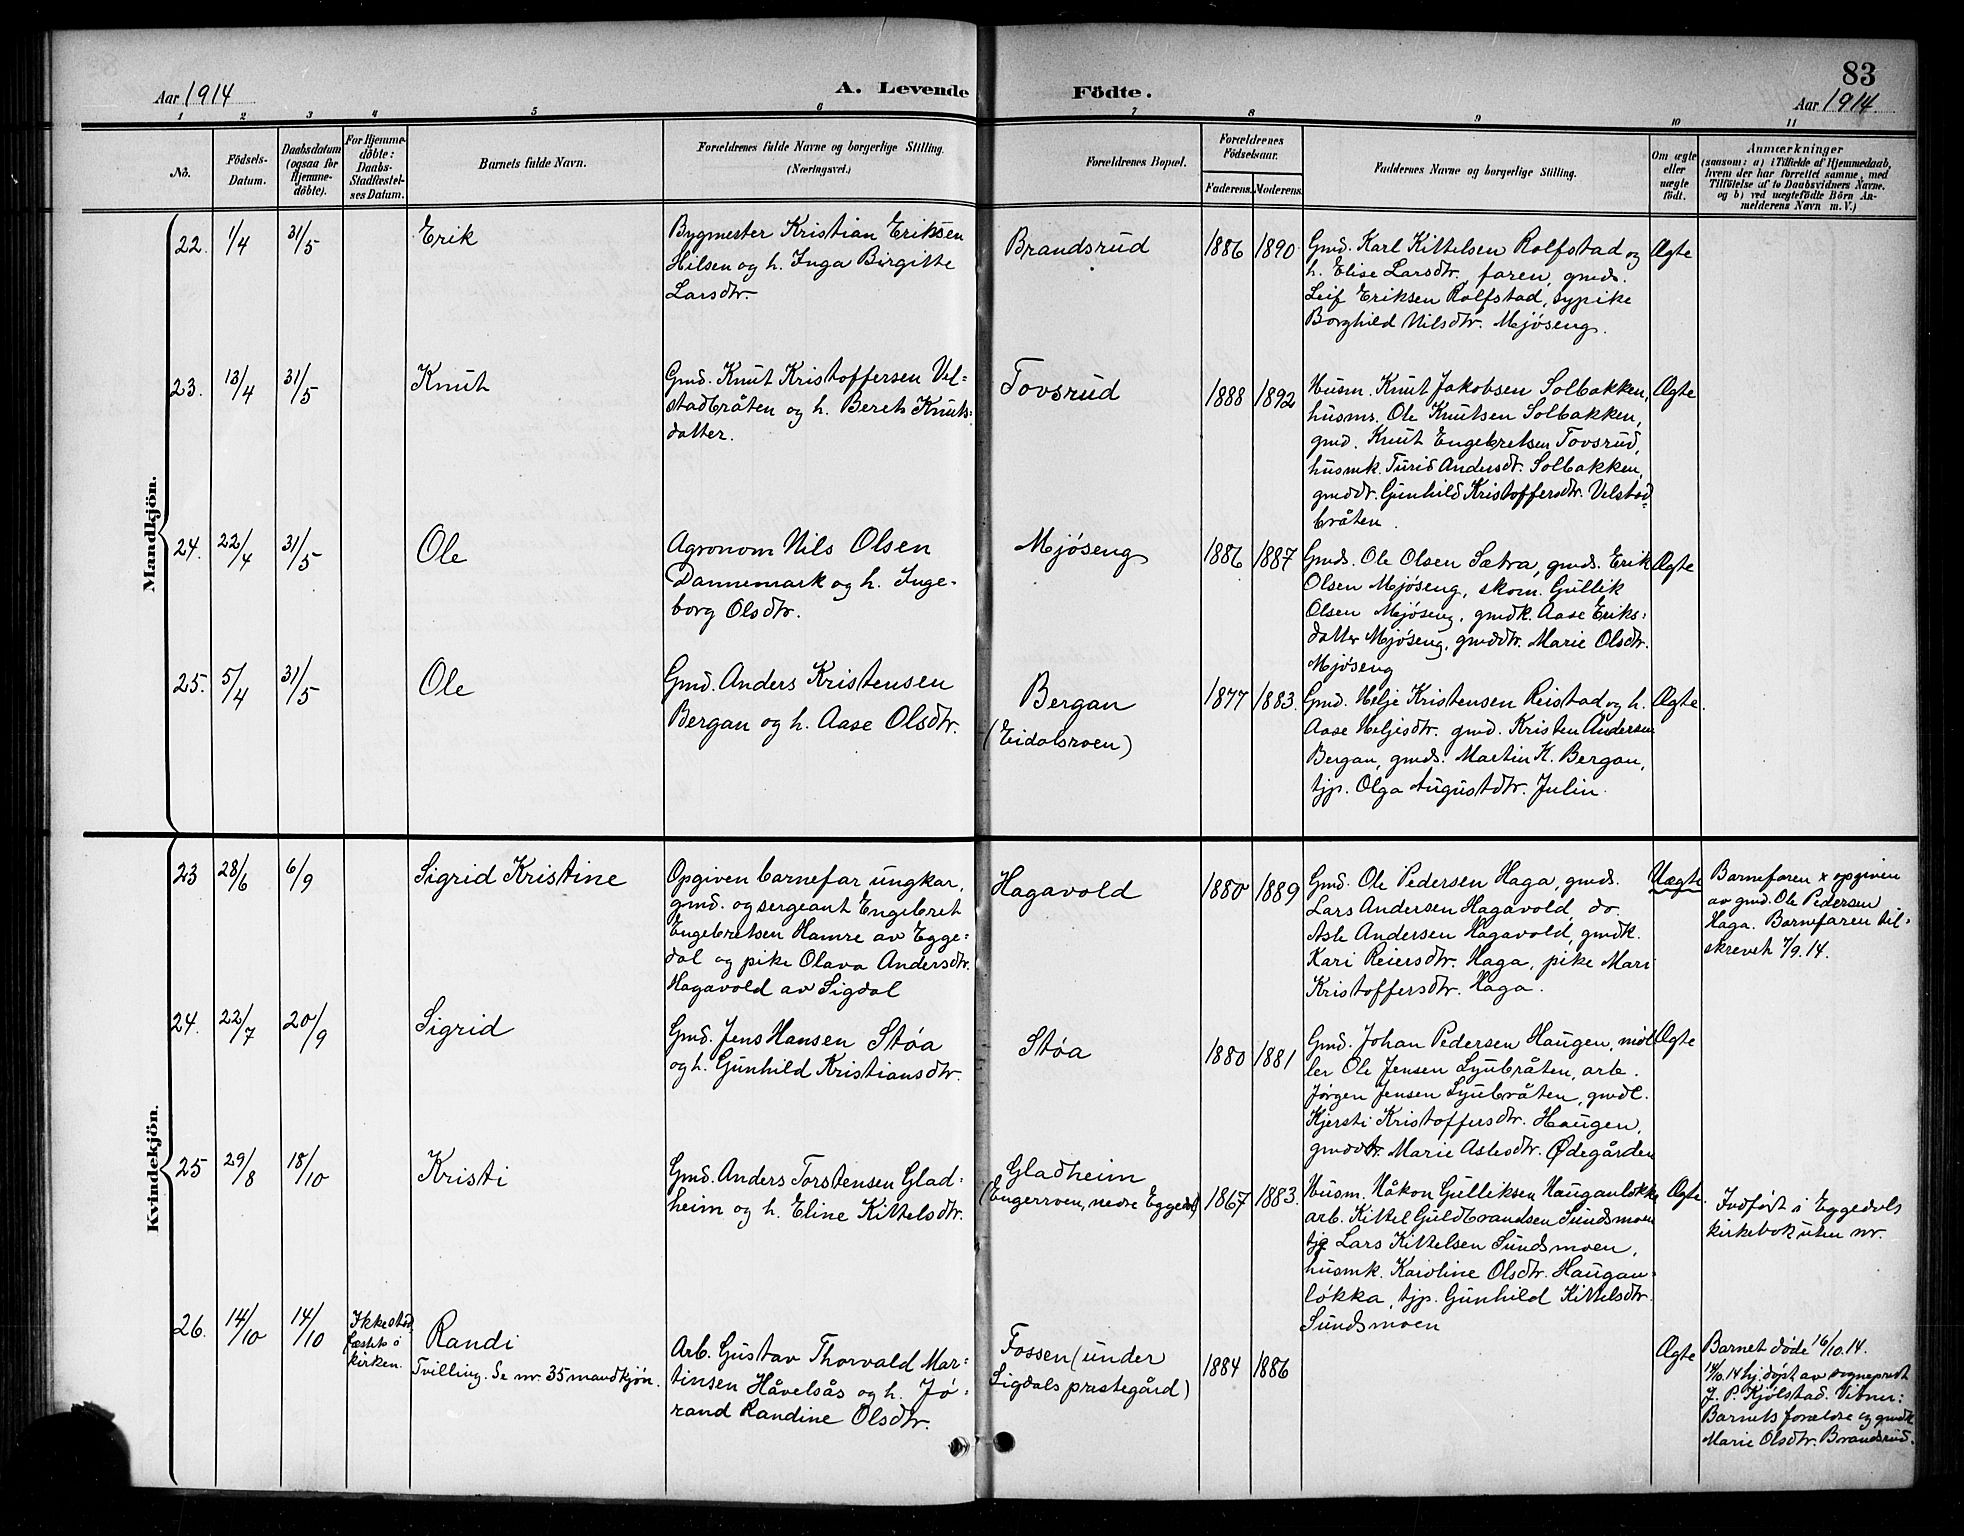 83
Aar 1914
A. Levende Födte.
Aar 1914
1 2 3 4 5 6 7 8 9 10 11
No.
Födsels-
Datum.
Daabsdatum
(ogsaa for
Hjemme-
döbte).
For Hjemme-
döbte:
Daabs-
Stadfæstel-
ses Datum.
Barnets fulde Navn.
Forældrenes fulde Navne og borgerlige Stilling.
(Næringsvei.)
Forældrenes Bopæl.
Forældrenes
Födselsaar.
Faderens. Moderens.
Faddernes Navne og borgerlige Stilling.
Om ægte
eller
uægte
födt.
Anmærkninger
(saasom: a) i Tilfælde af Hjemmedaab,
hvem der har forrettet samme, med
Tilföielse af to Daabsvidners Navne.
og b) ved uægtefödte Börn An-
melderens Navn m. V.)
Mandkjön.
22. 1/4 31/5 Erik
Bygmester Kristian Eriksen
Hilsen og h. Inga Birgitte
Larsdtr.
Brandsrud
1886 1890
Gmd. Karl Kittelsen Rolfstad og
h. Elise Larsdtr., faren, gmds.
Leif Eriksen Rolfstad, sypike
Borghild Nilsdtr. Mjøseng.
Ægte
23. 13/4 31/5 Knut
Gmd. Knut Kristoffersen Vel-
stadbråten og h. Beret Knuts-
datter.
Tovsrud
1888 1892
Husm. Knut Jakobsen Solbakken,
husms. Ole Knutsen Solbakken,
gmd. Knut Engebretsen Tovsrud,
husmk. Turid Andersdtr. Solbakken,
gmddtr. Gunhild Kristoffersdtr. Velstad-
bråten.
Ægte
24. 22/4 31/5 Ole
Agronom Nils Olsen
Dannemark og h. Inge-
borg Olsdtr.
Mjøseng
1886 1887
Gmds. Ole Olsen Sætra, gmds. Erik
Olsen Mjøseng, skom. Gullik
Olsen Mjøseng, gmdk. Aase Eriks-
datter Mjøseng, gmddtr. Marie Olsdtr.
Mjøseng
Ægte
25. 5/4 31/5 Ole
Gmd. Anders Kristensen
Bergan og h. Aase Olsdtr.
Bergan
(Eidalsroen)
1877 1883.
Gmd. Helje Kristensen Reistad og h.
Aase Heljesdtr. gmd. Kristen Andersen
Bergan, gmds. Martin K. Bergan,
tjp. Olga Augustdtr. Julin.
Ægte.
Kvindekjön.
23 28/6 6/9 Sigrid Kristine
Opgiven barnefar ungkar,
gmd. og sergeant Engebret
Engebretsen Hamre av Egge-
dal og pike Olava Andersdtr.
Hagavold av Sigdal
Hagavold
1880 1889
Gmd. Ole Pedersen Haga, gmds.
Lars Andersen Hagavold, do.
Asle Andersen Hagavold, gmdk.
Kari Reiersdtr. Haga, pike Mari
Kristoffersdtr. Haga.
Uægte
Barnefaren x opgiven
av gmd. Ole Pedersen
Haga. Barnefaren til-
skrevet 7/9.14.
24. 22/7 20/9 Sigrid
Gmd. Jens Hansen Støa
og h. Gunhild Kristiansdtr.
Støa
1880 1881
Gmd. Johan Pedersen Haugen, møl
ler Ole Jensen Lyubråten, arb.
Jørgen Jensen Lyubråten, gmdk.
Kjersti Kristoffersdtr. Haugen,
gmddtr. Marie Aslesdtr. Ødegården
Ægte
25 29/8 18/10 Kristi
Gmd. Anders Torstensen Glad-
heim og h. Eline Kittelsdtr.
Gladheim
(Engerroen, nedre Eggedal)
1867 1883.
Husm. Håkon Gulliksen Hauganløkka
arb. Kittel Guldbrandsen Sundsmoen
tjg Lars Kittelsen Sundsmoen,
husmk. Karoline Olsdtr. Haugan-
løkka, tjp. Gunhild Kittelsdtr.
Sundsmoen
Ægte.
Indført i Eggedals
kirkebok uten nr.
26. 14/10 14/10
Ikke stad
fæstet i
kirken.
Randi
Tvilling. Se nr. 35 mandkjøn.
Arb. Gustav Thorvald Mar-
tinsen Håvelsås og h. Jø-
rand Randine Olsdtr.
Fossen (under
Sigdals prestegård)
1884 1886
Ægte
Barnet døde 16/10.14.
14/10.14 hj.døpt av sogneprest
J. P. Kjølstad. Vitner:
Barnets forældre og gmdk
Marie Olsdtr. Brandsrud.